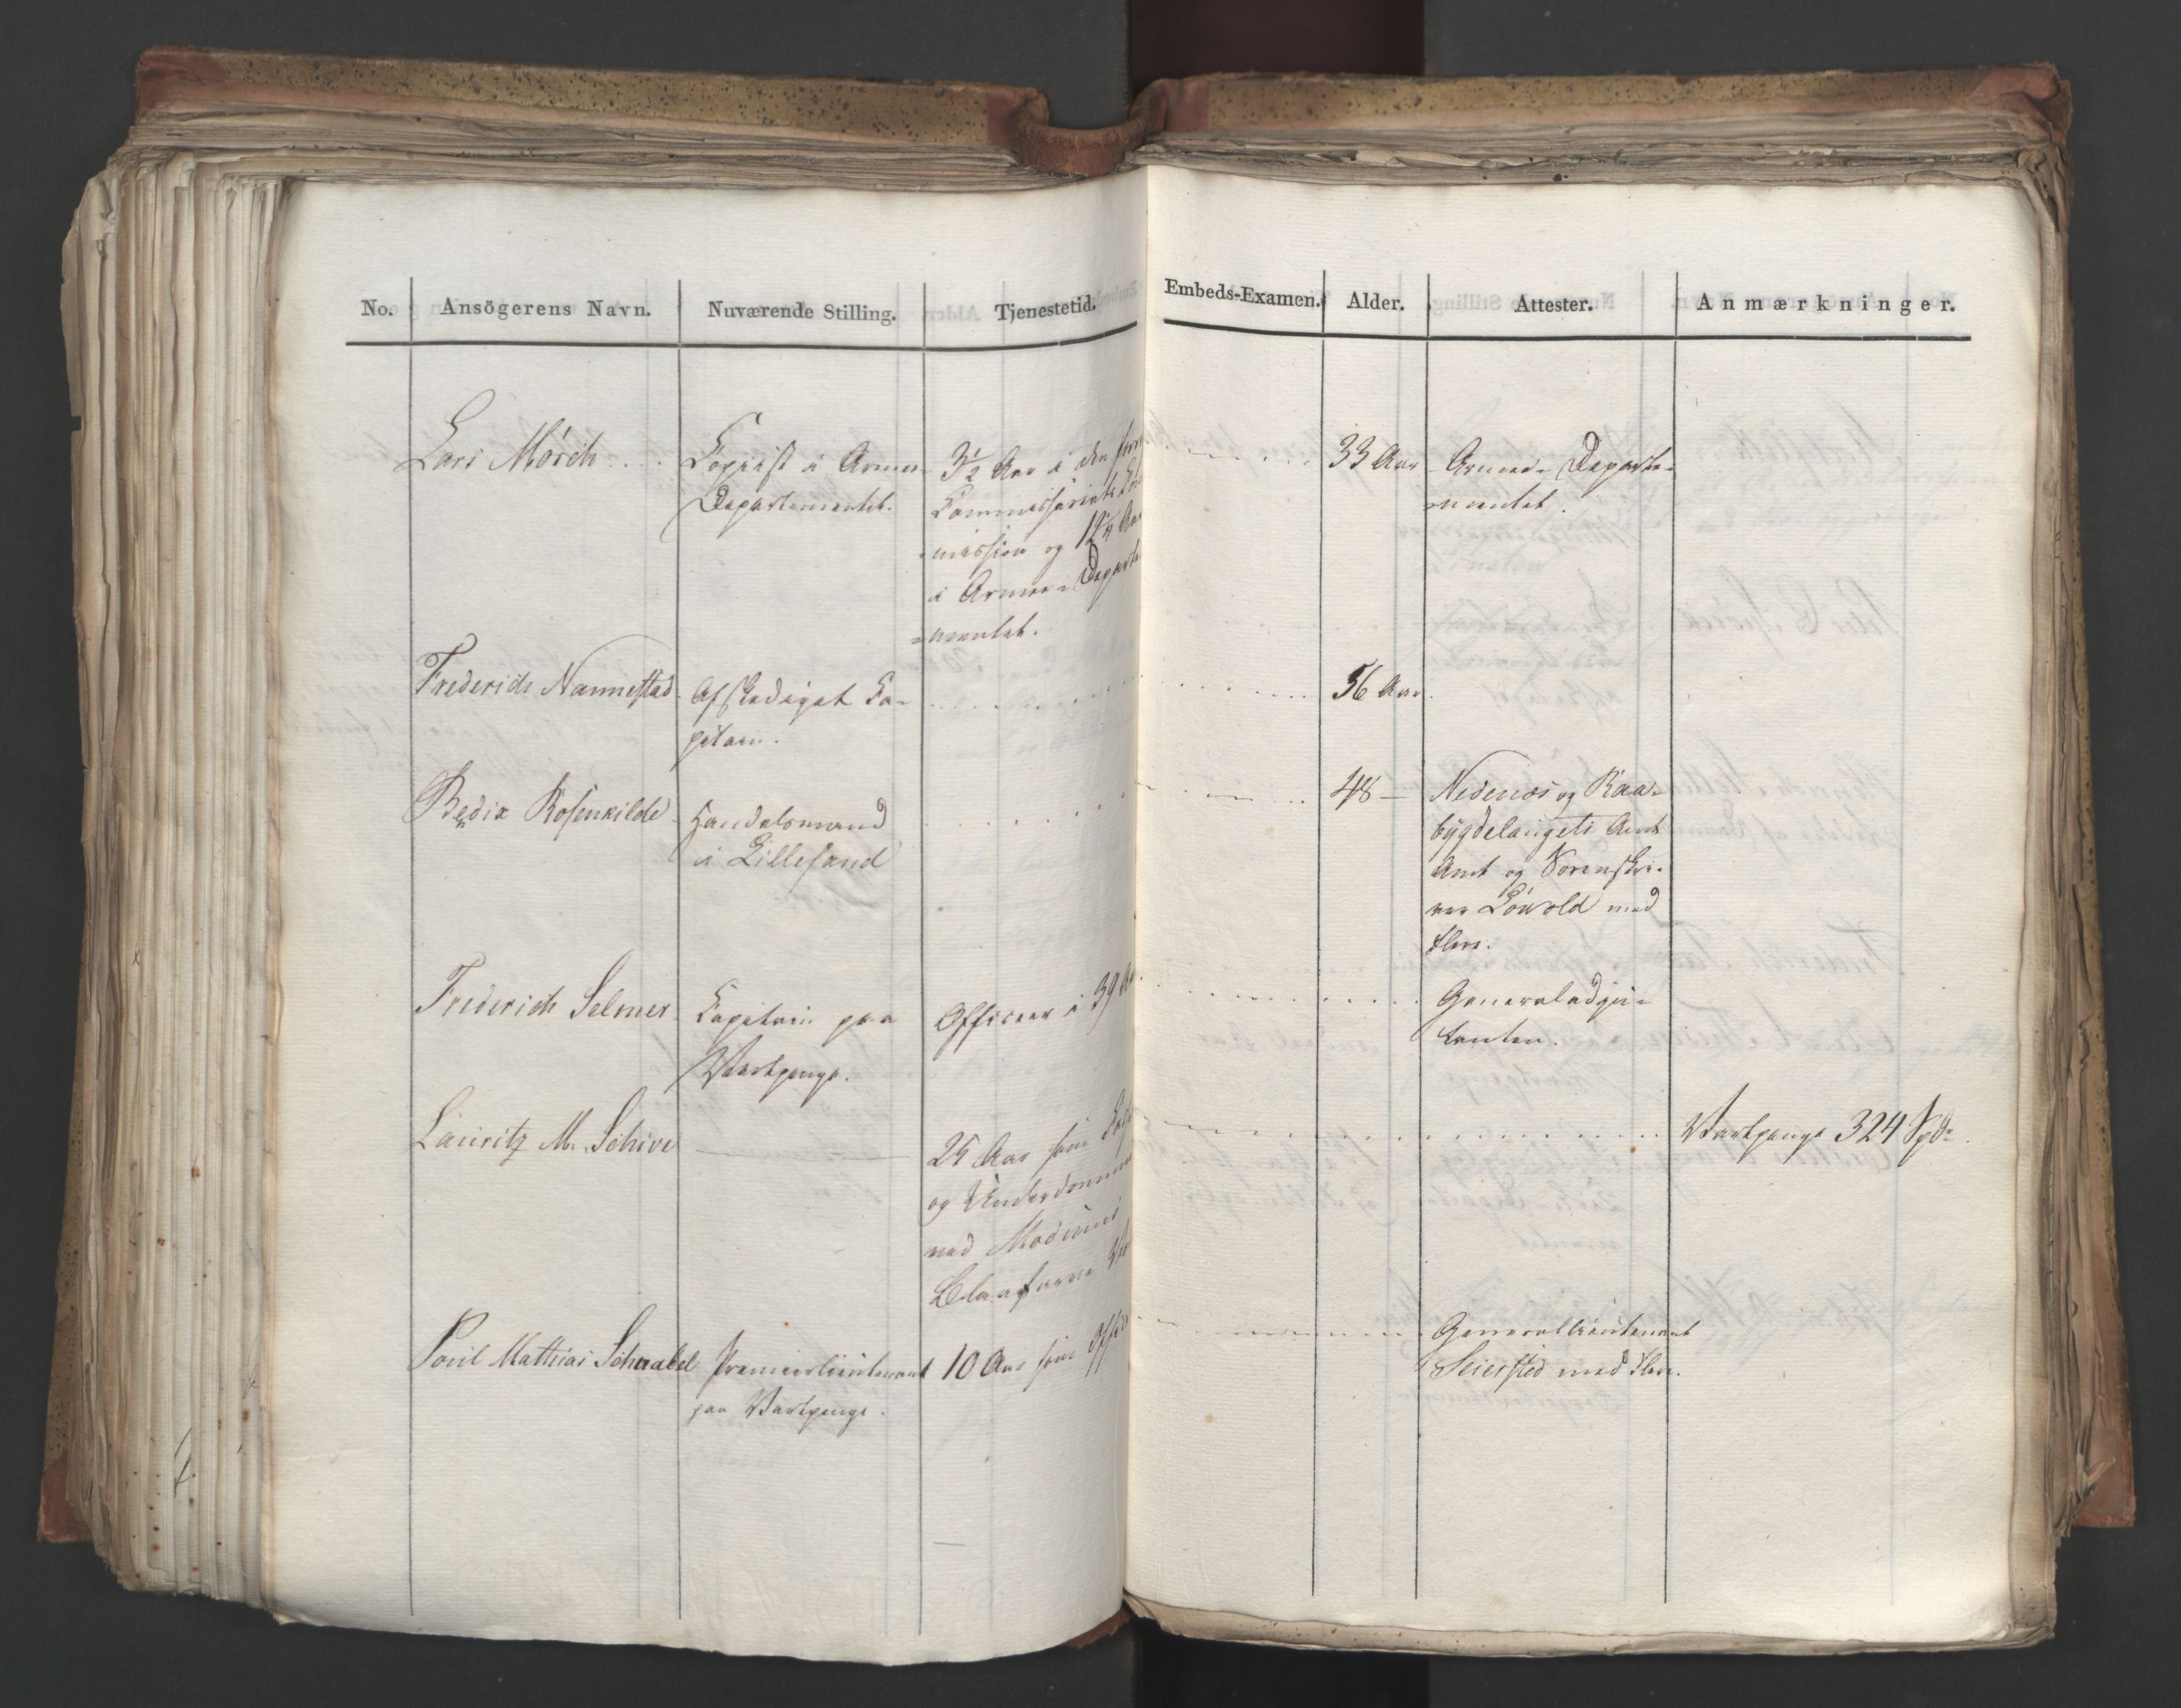 No. Ansögerens Navn. Nuværende Stilling. Tjenestetid. Embeds-Examen. Alder. Attester. Anmærkninger.
Lars Mörch
Copiist i Armee-
Departementet.
3½ Aar i den
Commissariats
mission og 12¼ Aar
i Armee-Departe
=mentet.
33 Aar
Armee-Departe-
mentet.
Frederich Nannestad
Afskediget Ca-
pitain.
56 Aar
Bendix Rosenkilde
Handelsmand
i Lillesand
48 —
Nedenæs og Raa-
bygdelaugets Amt
Amt og Sorenskri-
ver Lövold med
flere.
Frederich Selmer
Capitain paa
Vartpenge.
Officeer i 39
Generaladju-
tanten.
Lauritz M. Schive
25 Aar som
og
ved Modums
Blaafarve
Vartpenge 324 Spd.
Poul Mathias Schnabel
Premierlieutenant
paa Vartpenge.
10 Aar som
Generallieutenant
Seiersted med flere.